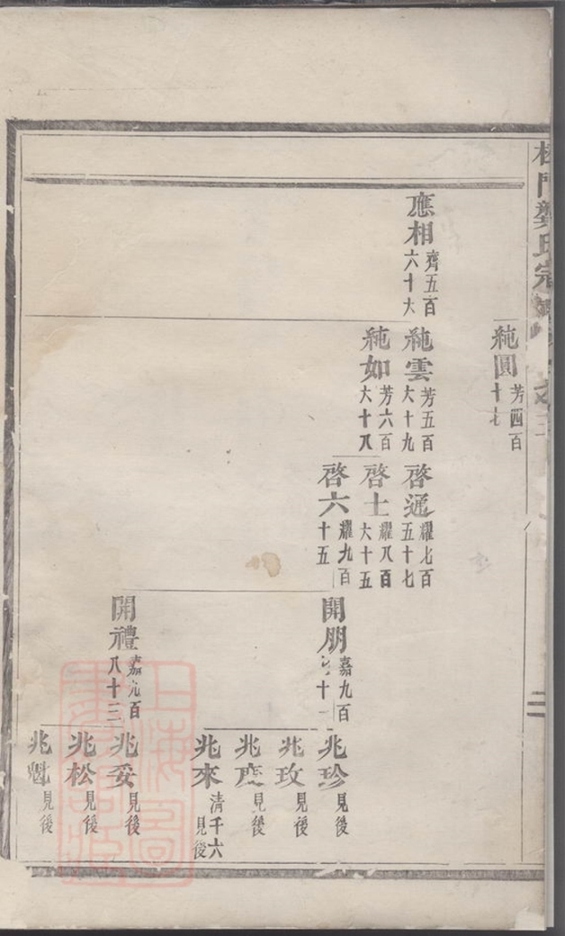 門龔氏宗
純圓 芳四百十七
應相 齊五百六十大
純雲 芳五百大十九
純如 芳六百大十八
啓通 耀七百五十七
啓土 耀八百大十五
啓六 耀九百十五
開朋 嘉九百十一
開禮 嘉九百八十三
兆珍 見後
兆玫 見後
兆 見後
兆來 清千六 見後
兆妥 見後
兆松 見後
兆魁 見後